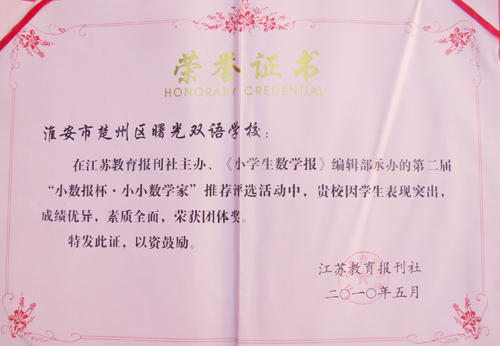 荣誉证书
HONORARY CREDENTIAL
淮安市楚州区曙光双语学校：
在江苏教育报刊社主办、《小学生数学报》编辑部承办的第二届
“小数报杯·小小数学家”推荐评选活动中，贵校因学生表现突出，
成绩优异，素质全面，荣获团体奖。
特发此证，以资鼓励。
江苏教育报刊社
二〇一〇年五月